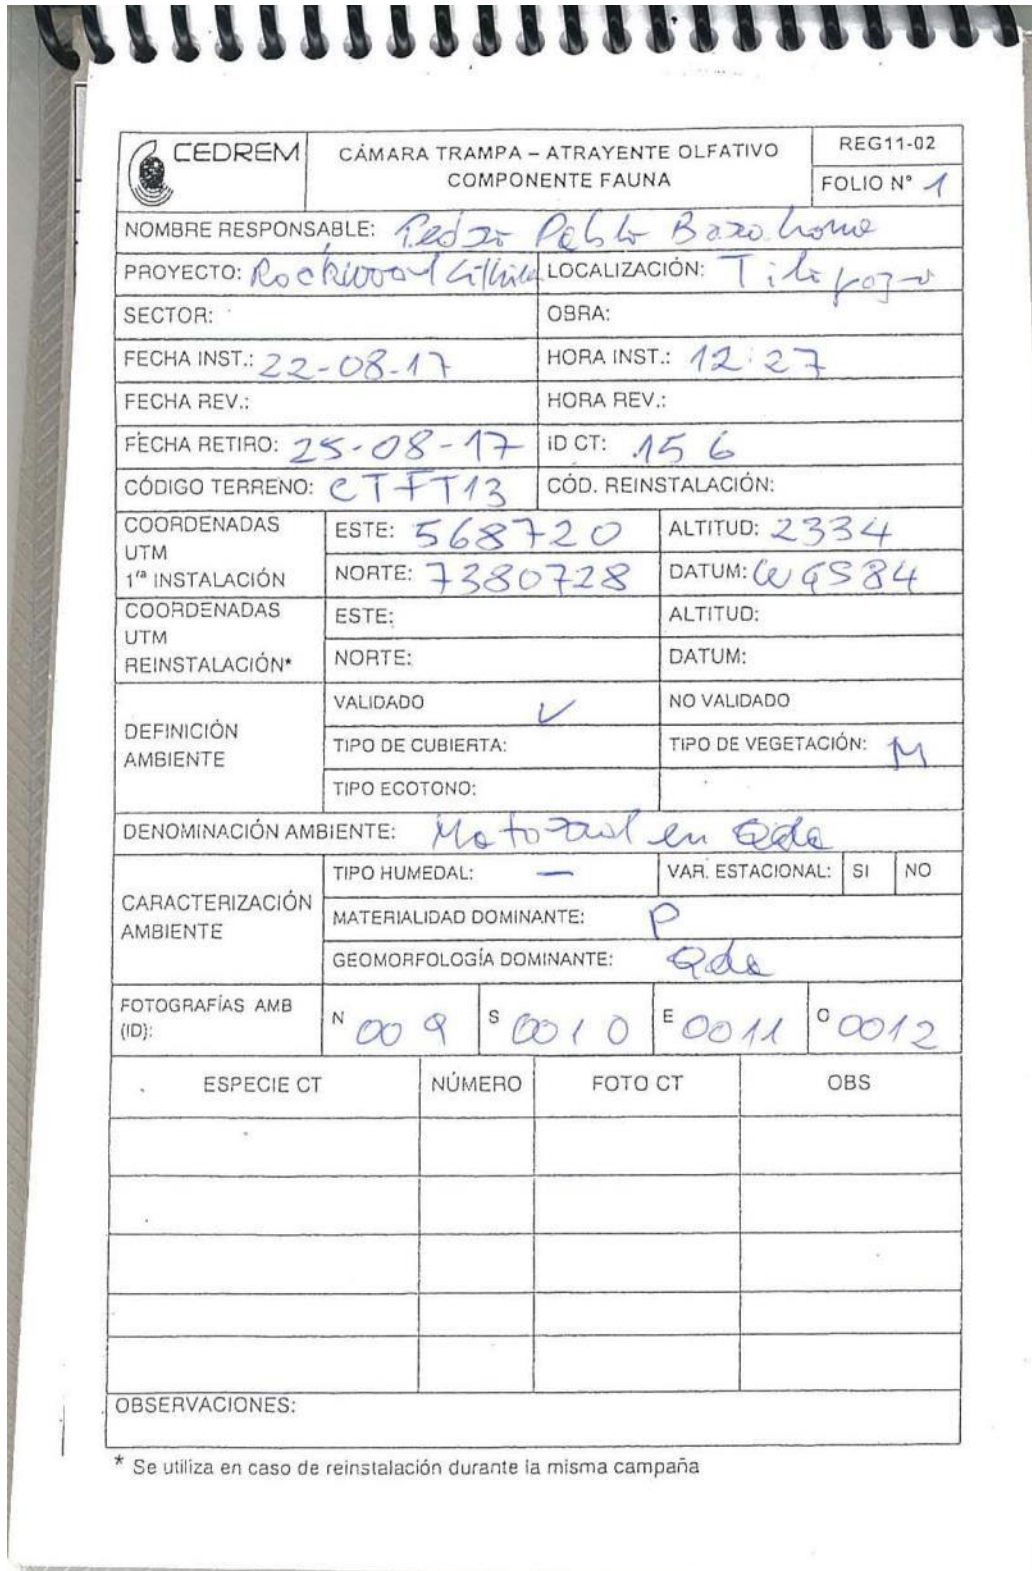 CEDREM
CÁMARA TRAMPA – ATRAYENTE OLFATIVO
COMPONENTE FAUNA
REG11-02
FOLIO N° 1
NOMBRE RESPONSABLE: Pedro Pablo Barahona
PROYECTO: Rockwood LOCALIZACIÓN: Tilopozo
SECTOR: OBRA:
FECHA INST.: 22-08-17 HORA INST.: 12:27
FECHA REV.: HORA REV.:
FECHA RETIRO: 25-08-17 ID CT: 156
CÓDIGO TERRENO: CTFT13 CÓD. REINSTALACIÓN:
COORDENADAS
UTM
1ra INSTALACIÓN
ESTE: 568720 ALTITUD: 2334
NORTE: 7380728 DATUM: WGS84
COORDENADAS
UTM
REINSTALACIÓN*
ESTE: ALTITUD:
NORTE: DATUM:
DEFINICIÓN
AMBIENTE
VALIDADO ✓ NO VALIDADO
TIPO DE CUBIERTA: TIPO DE VEGETACIÓN: M
TIPO ECOTONO:
DENOMINACIÓN AMBIENTE: Matorral en Qda
CARACTERIZACIÓN
AMBIENTE
TIPO HUMEDAL: — VAR. ESTACIONAL: SI NO
MATERIALIDAD DOMINANTE: P
GEOMORFOLOGÍA DOMINANTE: Qda
FOTOGRAFÍAS AMB
(ID):
N 009 S 0010 E 0011 O 0012
ESPECIE CT NÚMERO FOTO CT OBS
OBSERVACIONES:
* Se utiliza en caso de reinstalación durante la misma campaña